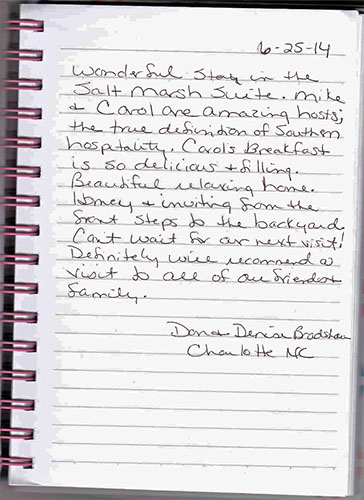 6-25-14
Wonderful stay in the
Salt Marsh Suite. Mike
& Carol are amazing hosts;
the true definition of Southern
hospitality. Carol's Breakfast
is so delicious & filling.
Beautiful relaxing home.
Homey & inviting from the
front steps to the backyard.
Can't wait for our next visit!
Definitely will recommend a
visit to all of our friends &
family.
Don & Denise Bradshaw
Charlotte NC